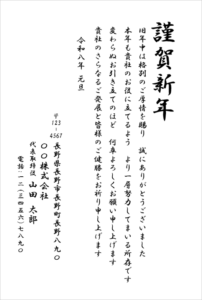 謹賀新年
旧年中は格別のご厚情を賜り　誠にありがとうございました
本年も貴社のお役に立てるよう　より一層努力してまいる所存です
変わらぬお引き立てのほど　何卒よろしくお願い申し上げます
貴社のさらなるご発展と皆様のご健勝をお祈り申し上げます
令和八年　元旦
〒123-4567
長野県長野市長野町長野八九〇
〇〇株式会社
代表取締役　山田　太郎
電話　一二（三四五六）七八九〇